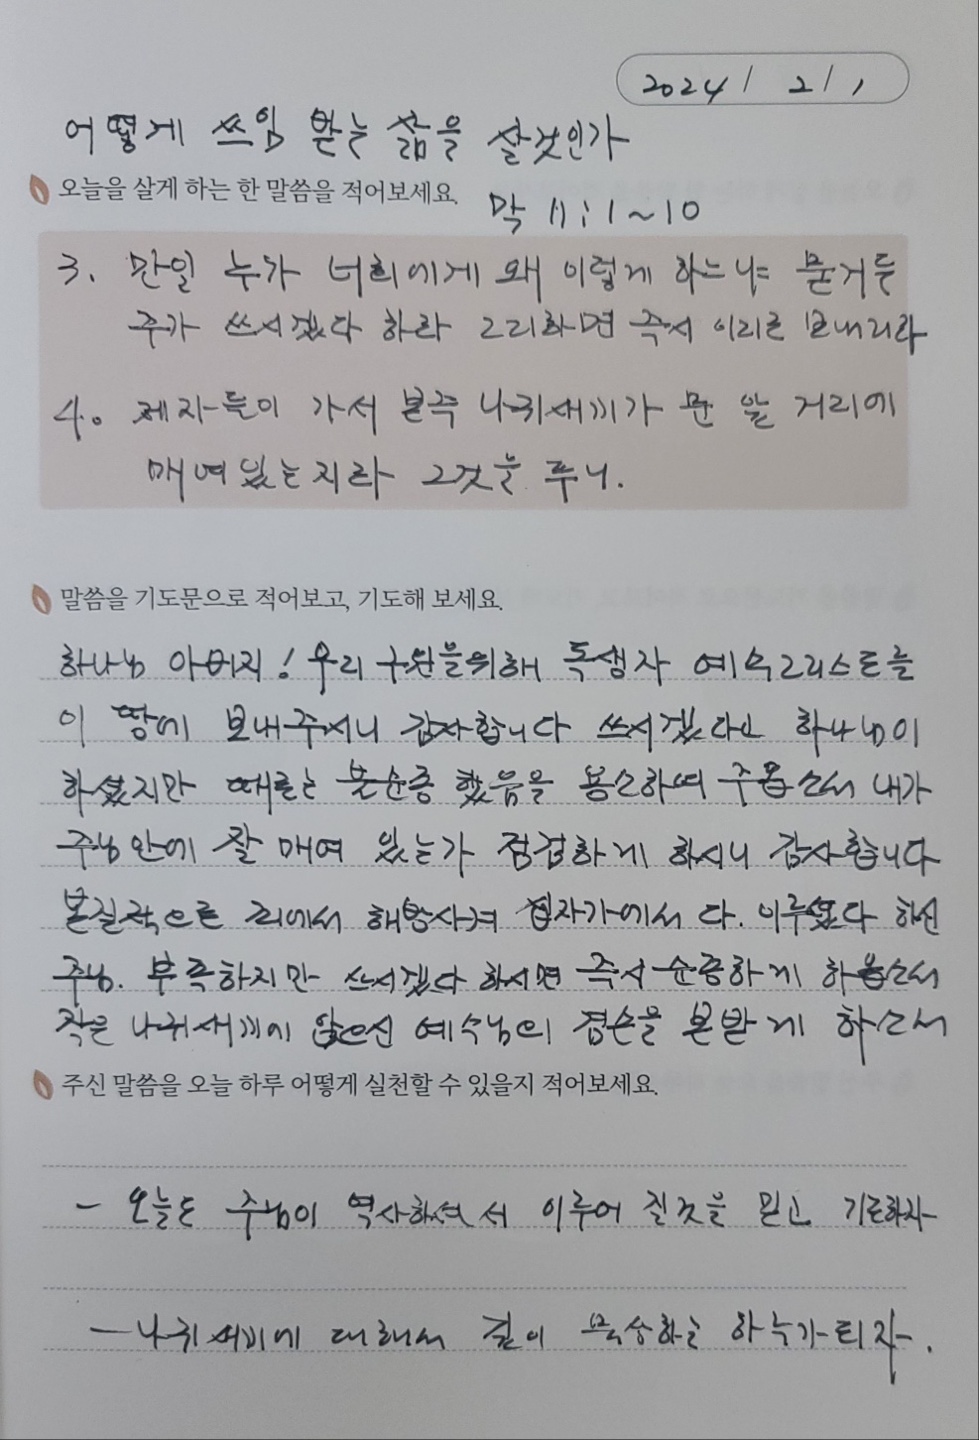 2024 / 2 / 1
어떻게 쓰임 받는 삶을 살것인가
오늘을 살게 하는 한 말씀을 적어보세요.
막 11:1~10
3. 만일 누가 너희에게 왜 이렇게 하느냐 묻거든
주가 쓰시겠다 하라 그리하면 즉시 이리로 보내리라
4. 제자들이 가서 본즉 나귀새끼가 문 앞 거리에
매여있는지라 그것을 푸니.
말씀을 기도문으로 적어보고, 기도해 보세요.
하나님 아버지! 우리 구원을위해 독생자 예수그리스도를
이 땅에 보내주시니 감사합니다 쓰시겠다고 하나님이
하셨지만 때로는 불순종 했음을 용소하여 주옵소서 내가
주님안에 잘 매여 있는가 점검하게 하시니 감사합니다
본질적으로 죄에서 해방시켜 십자가에서 다. 이루었다 하신
주님. 부족하지만 쓰시겠다 하시면 즉시 순종하게 하옵소서
작은 나귀새끼에 앉으신 예수님의 겸손을 본받게 하소서
주신 말씀을 오늘 하루 어떻게 실천할 수 있을지 적어보세요.
- 오늘도 주님이 역사하셔서 이루어 질것을 믿고 기도하자
- 나귀새끼에 대해서 깊이 묵상하는 하루가 되자.